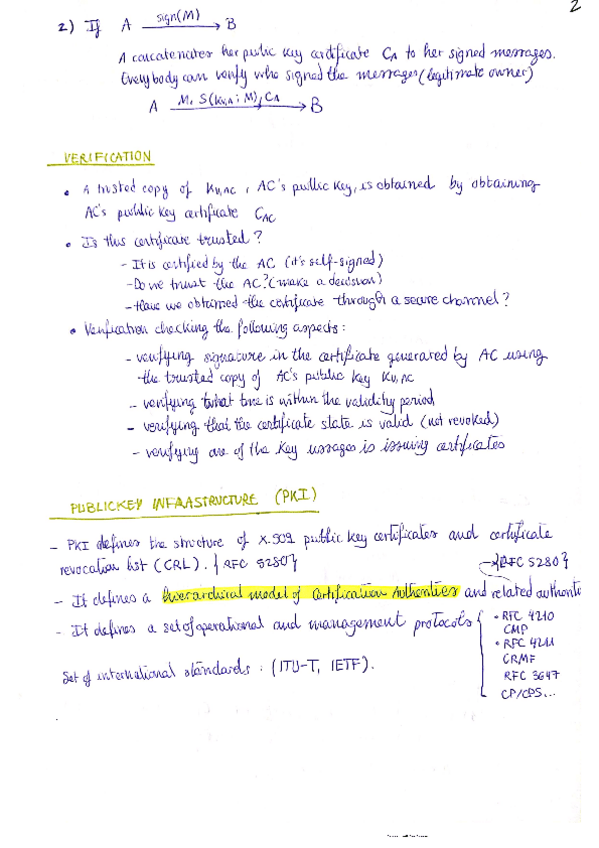 2
2) If A sign(M) B
A concatenates her public key certificate CA to her signed messages.
Everybody can verify who signed the messages (legitimate owner)
A M, S(Kv,A; M), CA B
VERIFICATION
• A trusted copy of Ku,AC, AC's public key, is obtained by obtaining
AC's public key certificate CAC
• Is this certificate trusted?
- It is certified by the AC (it's self-signed)
- Do we trust the AC? (make a decision)
- Have we obtained the certificate through a secure channel?
• Verification checking the following aspects:
- verifying signature in the certificate generated by AC using
the trusted copy of AC's public key Ku,AC
- verifying that time is within the validity period
- verifying that the certificate state is valid (not revoked)
- verifying one of the key usages is issuing certificates
PUBLIC KEY INFRASTRUCTURE (PKI)
- PKI defines the structure of X.509 public key certificates and certificate
revocation list (CRL). {RFC 5280}
{RFC 5280}
- It defines a hierarchical model of Certification Authorities and related authorit
- It defines a set of operational and management protocols
• RFC 4210
CMP
• RFC 4211
CRMF
RFC 3647
CP/CPS...
Set of international standards: (ITU-T, IETF).